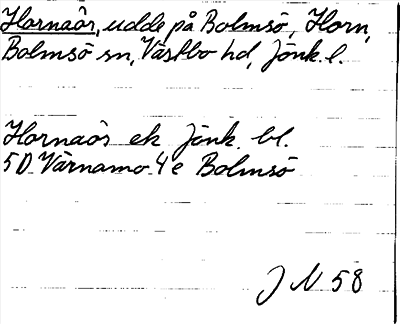 Hornaôr, udde på Bolmsö, Horn,
Bolmsö sn, Västbo hd, Jönk. l.
Hornaôs ek Jönk. bl.
5D Värnamo 4e Bolmsö
J N 58